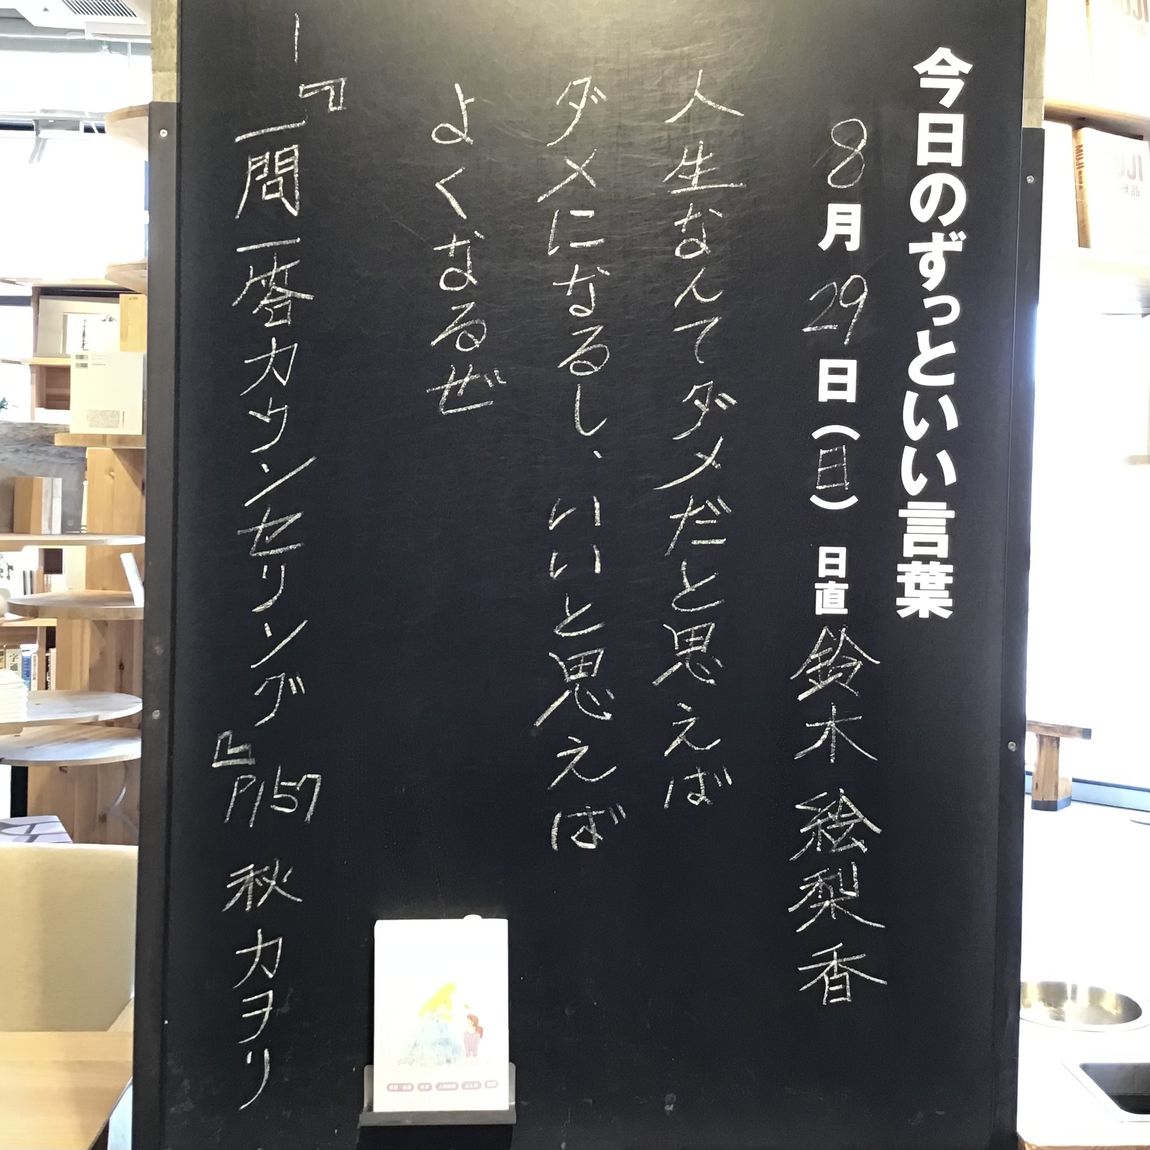 今日のずっといい言葉
8月29日(日) 日直 鈴木 絵梨香
人生なんてダメだと思えば
ダメになるし、いいと思えば
よくなるぜ
―『一問一答カウンセリング』P157 秋カヲリ